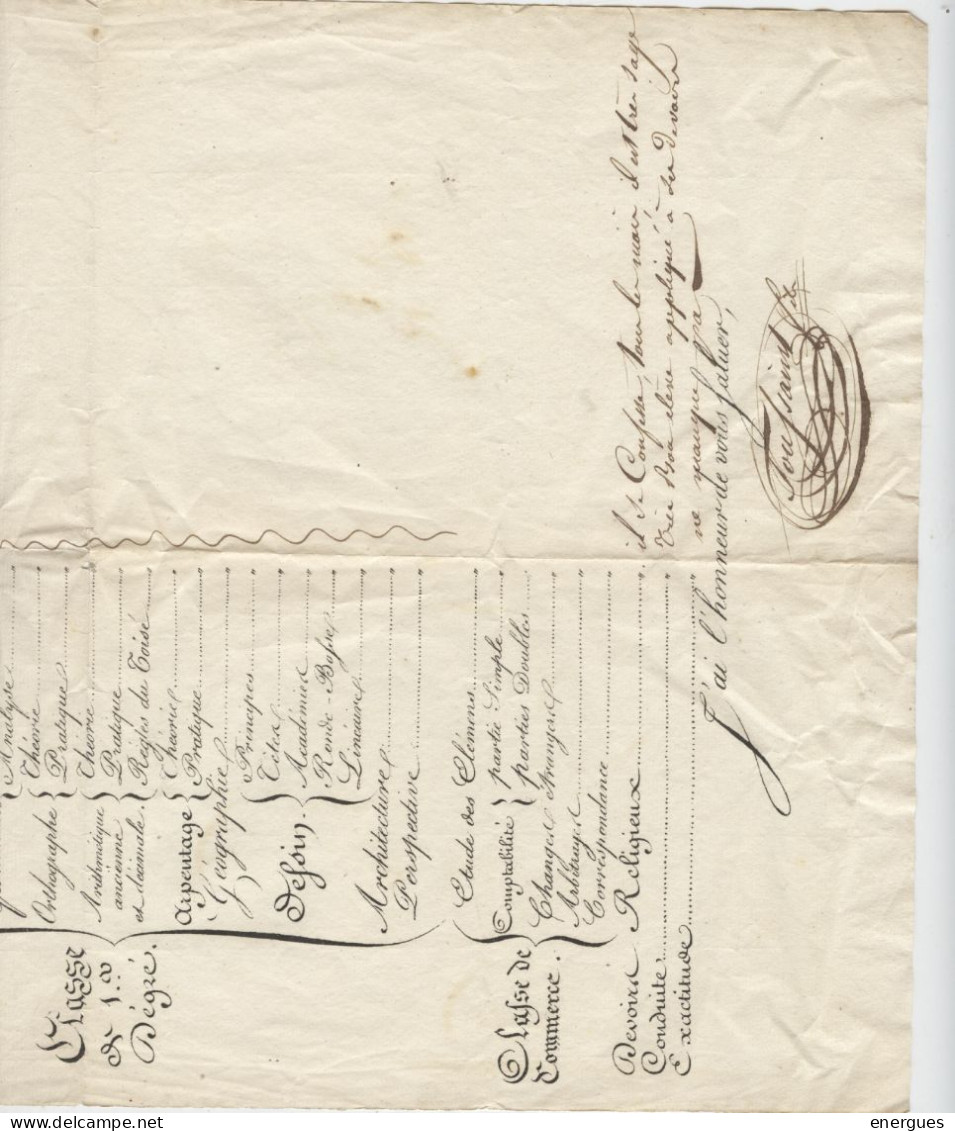 Analyse
Orthographe { Théorie
Pratique
Arithmétique ancienne et décimale. { Théorie
Pratique
Règles du Toisé
Arpentage { Théorie
Pratique
Géographie
Dessin. { Principes
Têtes
Académies
Ronde-Bosse
Linéaire
Architecture
Perspective
Classe
de 1.er
Dégré.
Classe de
Commerce.
Etude des Élémens
Comptabilité { partie Simple
parties Doubles
Changes Étrangers
Arbitrages
Correspondance
Devoirs Religieux . il se Confesse, tous les mois, il est très sage
Conduite très Bon élève appliqué à ses devoirs
Exactitude ne manque pas
J'ai l'honneur de vous saluer,
Toussaint
energues